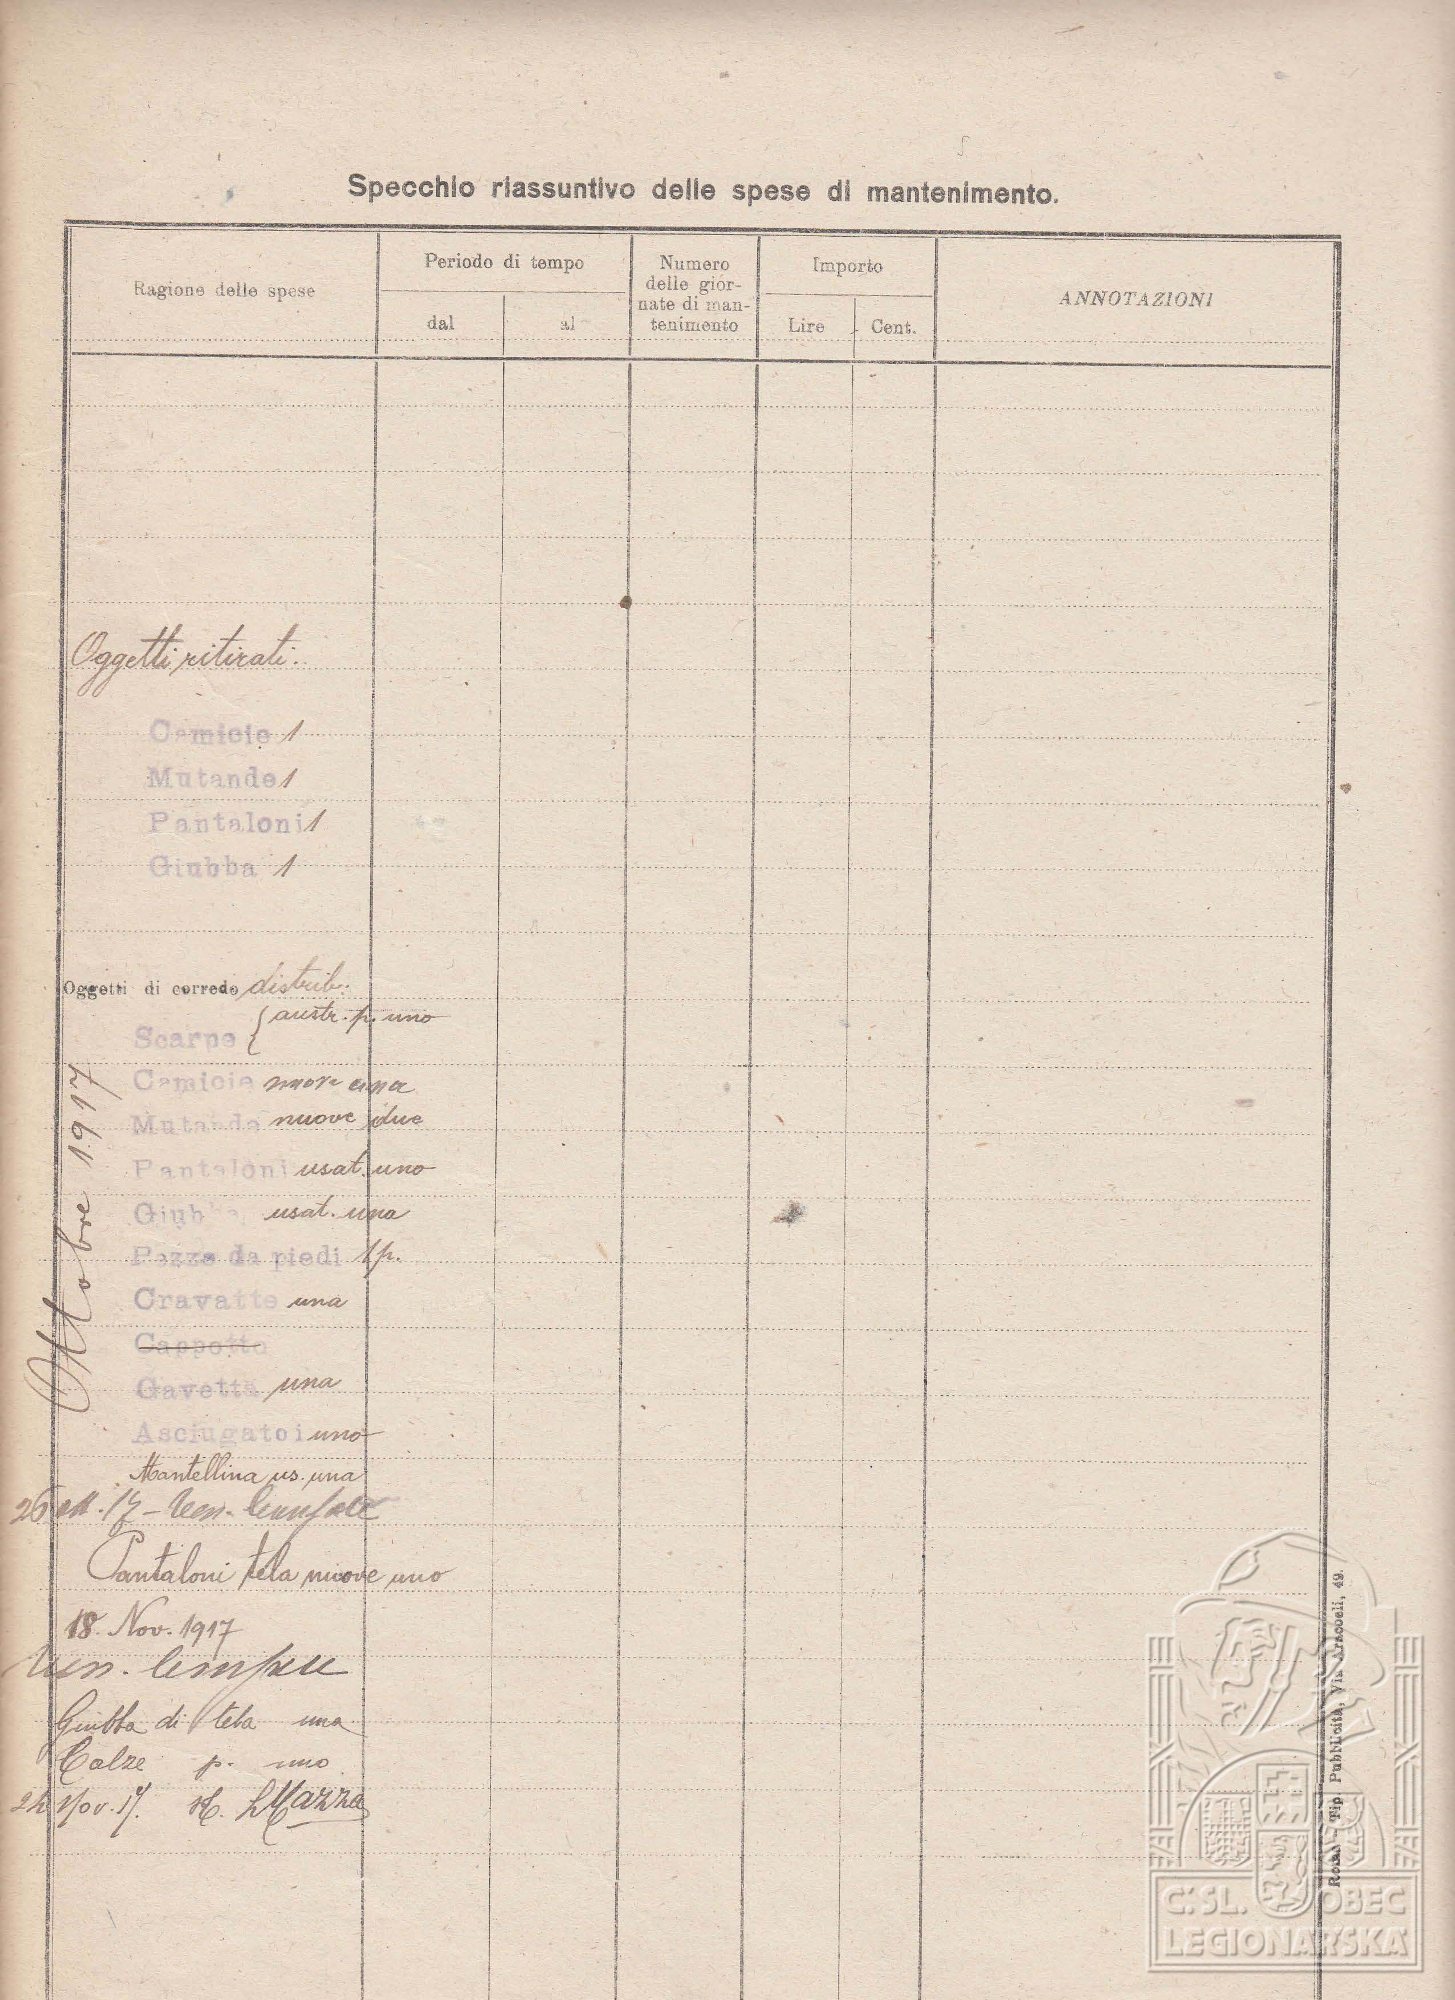 Specchio riassuntivo delle spese di mantenimento.
Ragione delle spese
Periodo di tempo
dal
al
Numero
delle gior-
nate di man-
tenimento
Importo
Lire
Cent.
ANNOTAZIONI
Oggetti ritirati.
Camicie 1
Mutande 1
Pantaloni 1
Giubba 1
Oggetti di corredo distrib.
Scarpe { austr. p. uno
Camicie nuove una
Mutande nuove due
Pantaloni usat. uno
Giubba usat. una
Pezze da piedi 1 p.
Cravatte una
Cappotto
Gavetta una
Asciugatoi uno
Mantellina us. una
Ottobre 1917
26 ott. 17 -
Pantaloni tela nuove uno
18. Nov. 1917
Giubba di tela una
Calze p. uno
Nov. 17. Mazza
Roma - Tip. Pubblicità, Via Aracoeli, 49.
Č.SL. OBEC
LEGIONÁŘSKÁ